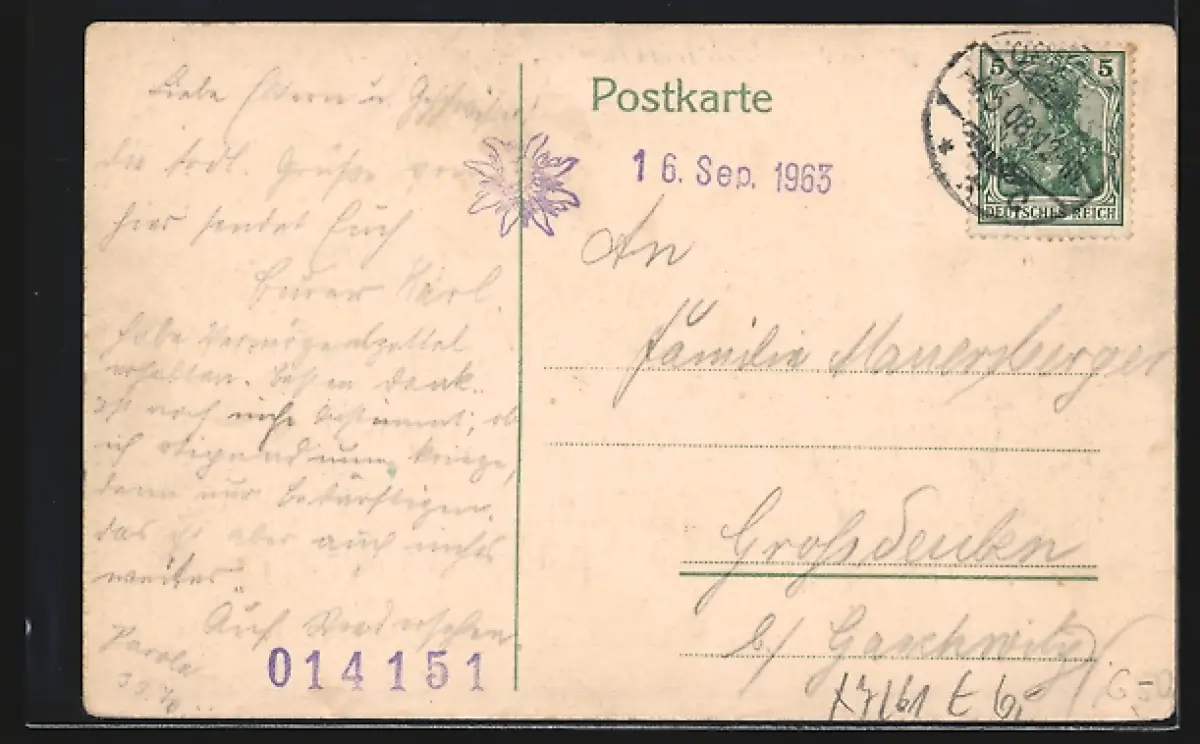 Liebe Eltern u. Geschwister!
die herzl. Grüße von
hier sendet Euch
Euer Karl.
Habe Vermögenszettel
erhalten. Besten Dank.
Ist noch nicht bestimmt, ob
ich Stipendium kriege,
denn nur Bedürftigen.
das ist aber auch nichts
weiter.
Auf Wiedersehen
Parole
014151
Postkarte
16. Sep. 1963
5 5
DEUTSCHES REICH
An
Familie Mauersberger
Großdeuben
b/ Gaschwitz